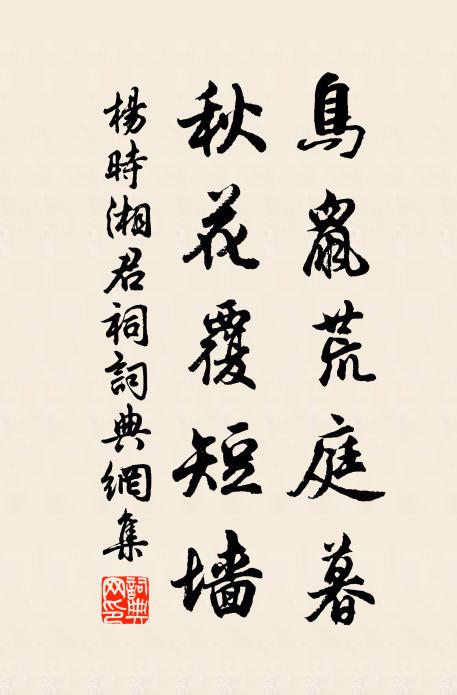 鳥鼠荒庭暮
秋花覆短墻
楊時湘君祠詞典網集
詞典網印